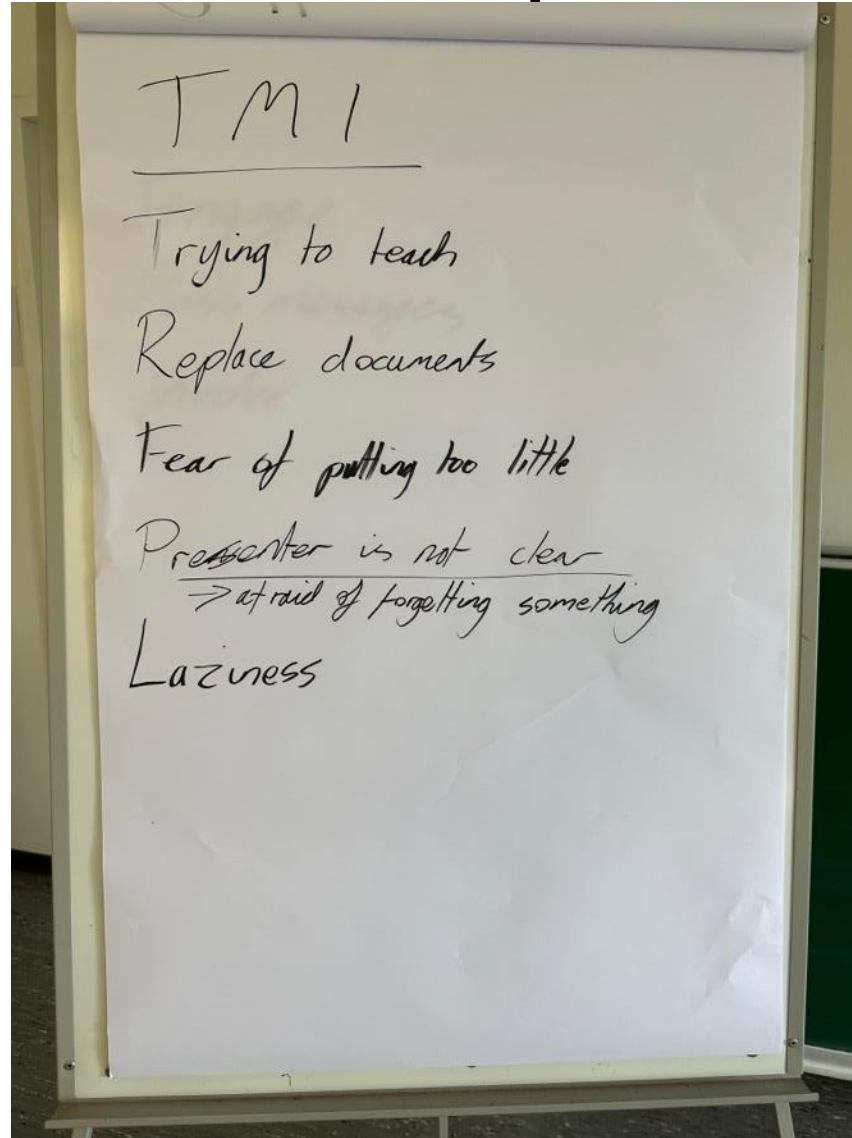 TMI
Trying to teach
Replace documents
Fear of putting too little
Presenter is not clear
→ afraid of forgetting something
Laziness